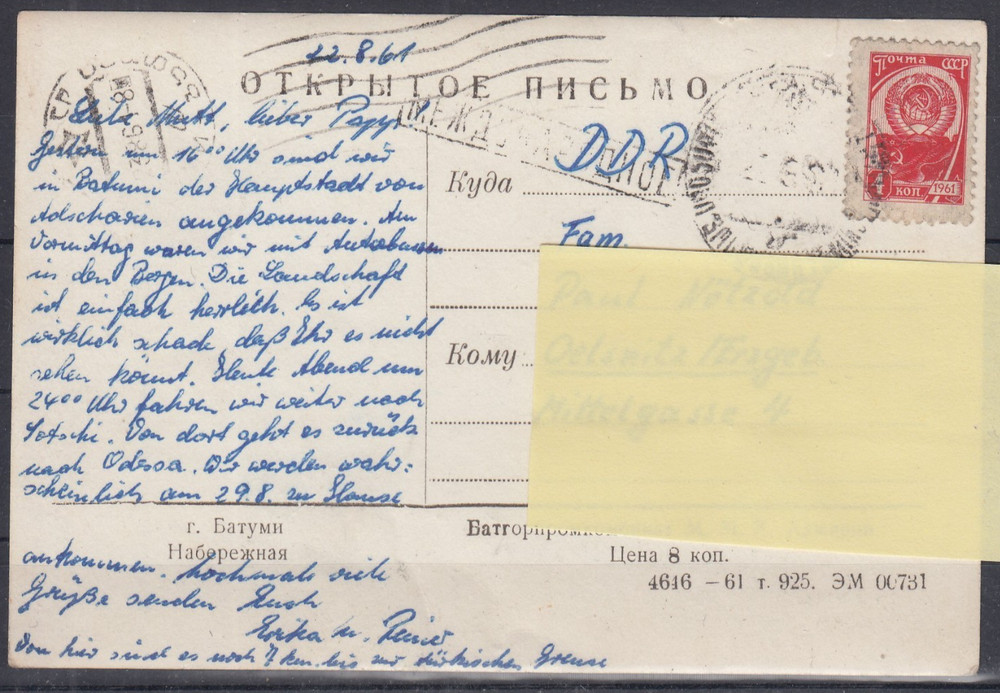 22.8.61
ОТКРЫТОЕ ПИСЬМО
Liebe Mutti, lieber Pappi
Gestern um 16⁰⁰ Uhr sind wir
in Batumi der Hauptstadt von
Adscharien angekommen. Am
Vormittag waren wir mit Autobussen
in den Bergen. Die Landschaft
ist einfach herrlich. Es ist
wirklich schade, daß Ihr es nicht
sehen könnt. Heute Abend um
24⁰⁰ Uhr fahren wir weiter nach
Sotschi. Von dort geht es zurück
nach Odessa. Wir werden wahr-
scheinlich am 29.8. zu Hause
ankommen. Nochmals viele
Grüße senden Euch
Erika u.
Von hier sind es noch 7 km bis zur türkischen Grenze
МЕЖДУНАРОДНОЕ
ПОЧТА СССР
КОП 1961
Куда
DDR
Fam.
Paul
Oelsnitz Erzgeb.
Mittelgasse 4
Кому
г. Батуми
Набережная
Батгорпромк
Цена 8 коп.
4646 – 61 т. 925. ЭМ 00731